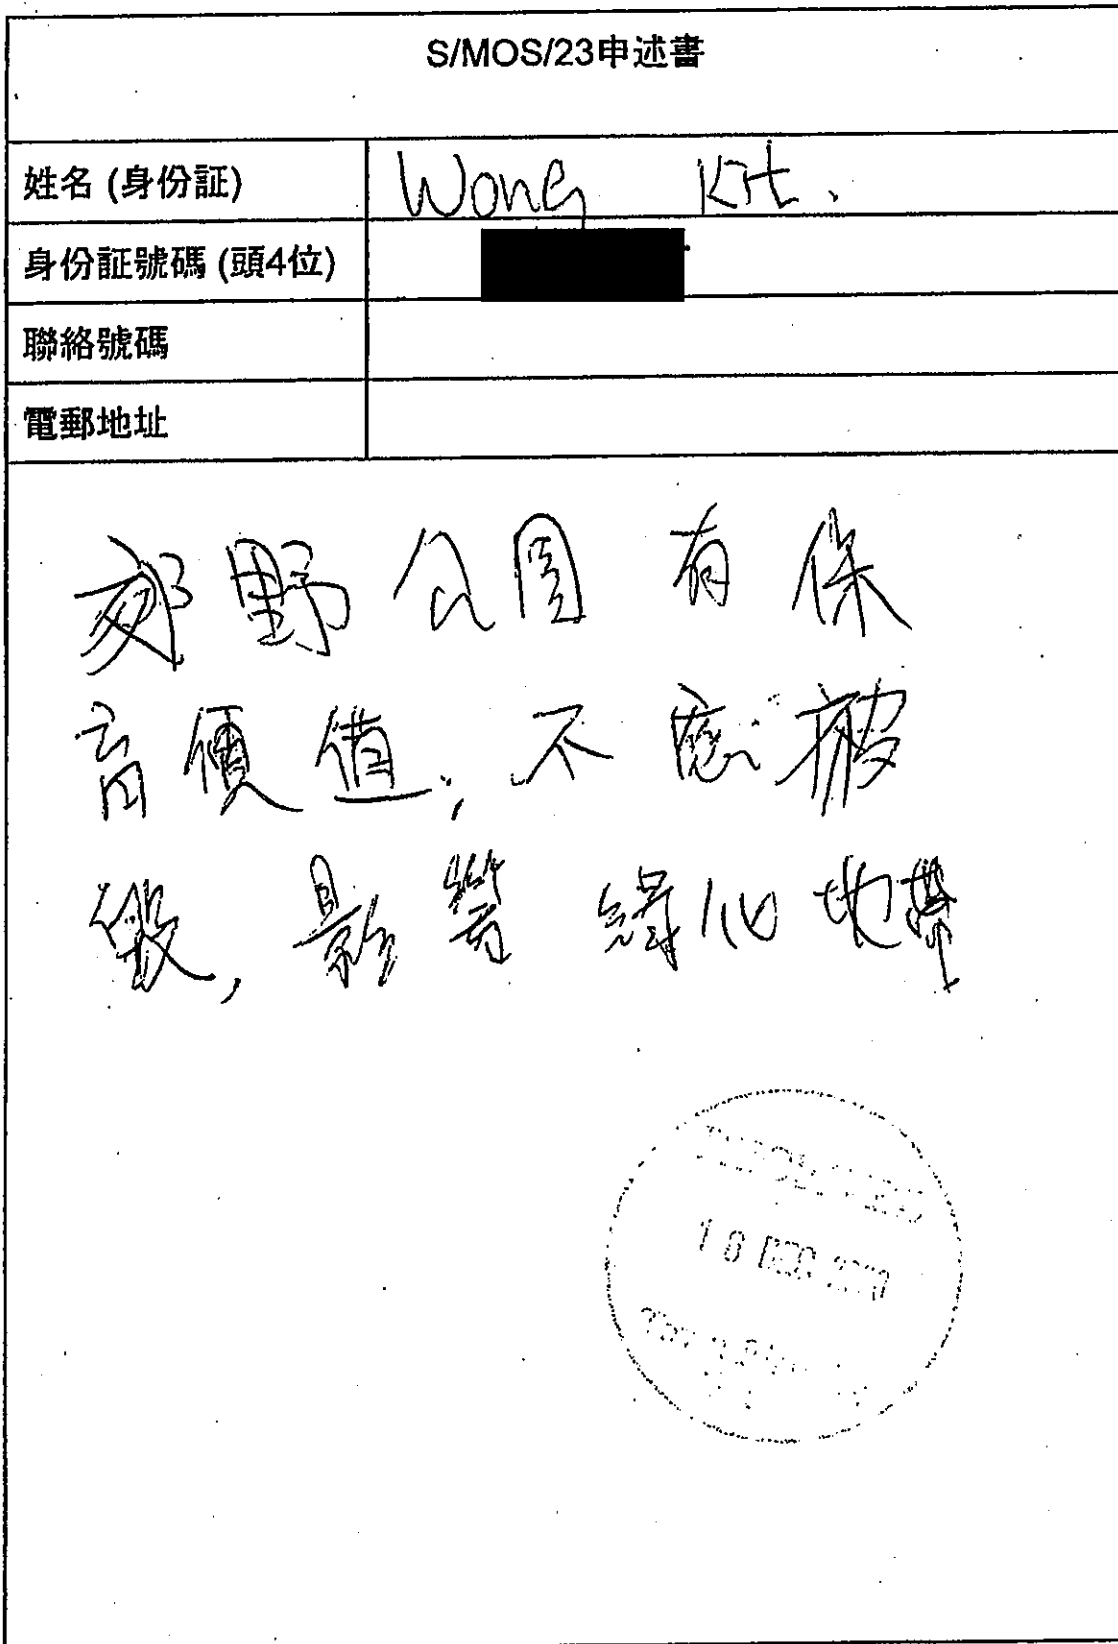 S/MOS/23申述書
姓名 (身份証) Wong Kit.
身份証號碼 (頭4位)
聯絡號碼
電郵地址
郊野公園有保
育價值，不應被
毀，影響綠化地帶
18 DEC